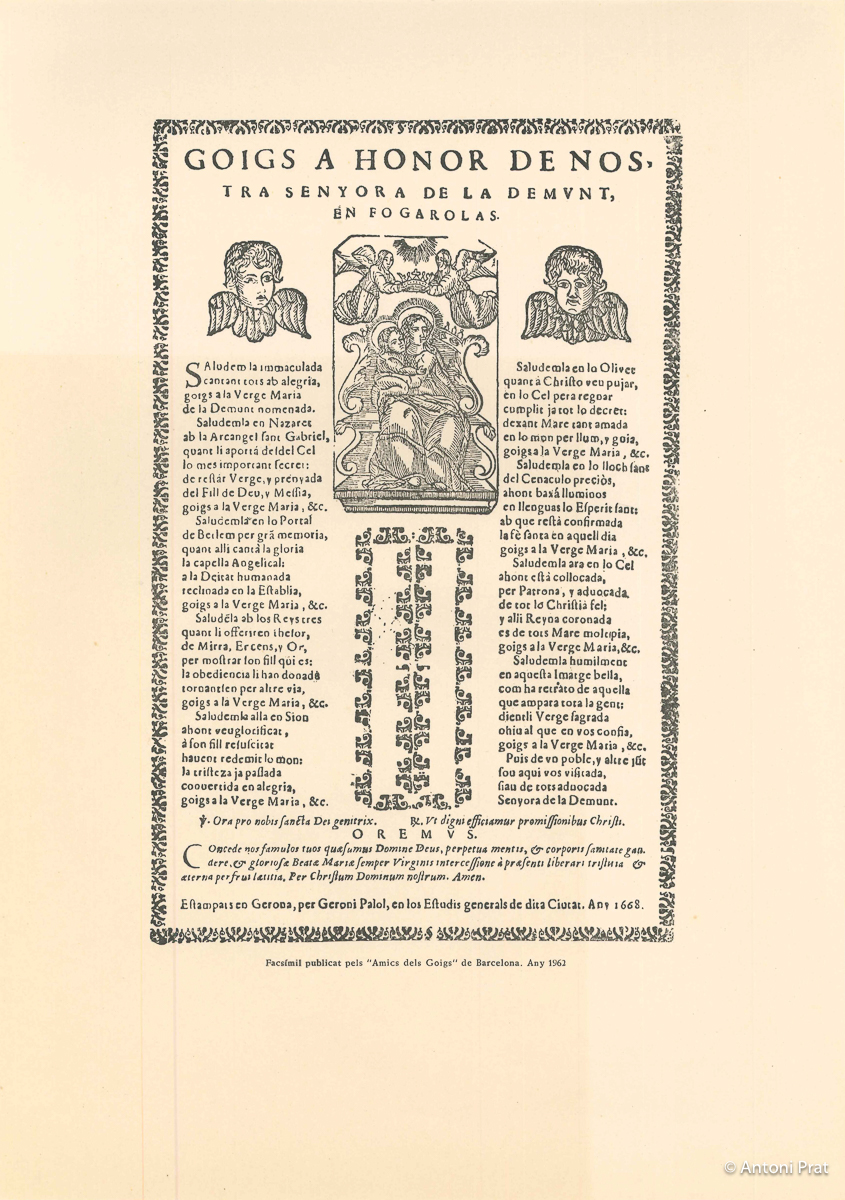 GOIGS A HONOR DE NOS-
TRA SENYORA DE LA DEMVNT,
EN FOGAROLAS.
SAludem la immaculada
cantant tots ab alegria,
goigs a la Verge Maria
de la Demunt nomenada.
Saludemla en Nazaret
ab la Arcangel sant Gabriel,
quant li aportá desdel Cel
lo mes important secret:
de restár Verge, y prenyada
del Fill de Deu, y Messia,
goigs a la Verge Maria, &c.
Saludemla en lo Portal
de Betlem per grã memoria,
quant alli cantá la gloria
la capella Angelical:
a la Deitat humanada
reclinada en la Establia,
goigs a la Verge Maria, &c.
Saludẽla ab los Reys tres
quant li offeriren thesor,
de Mirra, Encens, y Or,
per mostrar son fill qui es:
la obediencia li han donada
tornantsen per altre via,
goigs a la Verge Maria, &c.
Saludemla alla en Sion
ahont veu glorificat,
á son fill resuscitat
havent redemit lo mon:
la tristeza ja passada
convertida en alegria,
goigs a la Verge Maria, &c.
Saludemla en lo Olivet
quant á Christo veu pujar,
en lo Cel pera regnar
cumplit ja tot lo decret:
dexant Mare tant amada
en lo mon per llum, y guia,
goigs a la Verge Maria, &c.
Saludemla en lo lloch sant
del Cenaculo preciòs,
ahont baxá lluminos
en llenguas lo Esperit sant:
ab que restà confirmada
la fè santa en aquell dia
goigs a la Verge Maria, &c.
Saludemla ara en lo Cel
ahont està collocada,
per Patrona, y aduocada
de tot lo Christiá fel;
y alli Reyna coronada
es de tots Mare molt pia,
goigs a la Verge Maria, &c.
Saludemla humilment
en aquesta Imatge bella,
com ha retrato de aquella
que ampara tota la gent:
dientli Verge sagrada
ohiu al que en vos confia,
goigs a la Verge Maria, &c.
Puis de vn poble, y altre jũt
sou aqui vos visitada,
siau de tots aduocada
Senyora de la Demunt.
℣. Ora pro nobis sancta Dei genitrix. ℟. Vt digni efficiamur promissionibus Christi.
OREMVS.
COncede nos famulos tuos quæsumus Domine Deus, perpetua mentis, & corporis sanitate gau-
dere, & gloriosæ Beatæ Mariæ semper Virginis intercessione à præsenti liberari tristitia &
æterna perfrui lætitia. Per Christum Dominum nostrum. Amen.
Estampats en Gerona, per Geroni Palol, en los Estudis generals de dita Ciutat. Any 1668.
Facsímil publicat pels "Amics dels Goigs" de Barcelona. Any 1962
© Antoni Prat